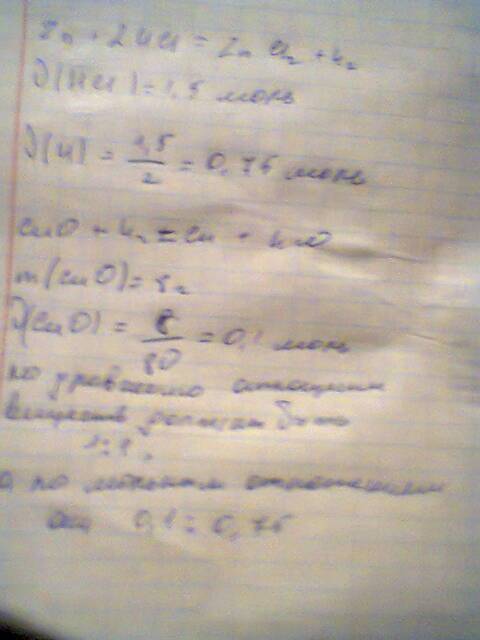 Zn + 2HCl = ZnCl₂ + H₂
ν(HCl) = 1,5 моль
ν(H) = 1,5/2 = 0,75 моль
CuO + H₂ = Cu + H₂O
m(CuO) = 8г
ν(CuO) = 8/80 = 0,1 моль
по уравнению отношения
веществ должны быть
1:1,
а по мольным отношениям
0,1 : 0,75